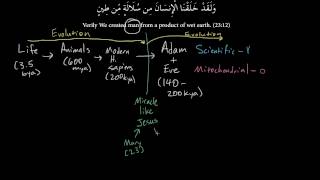 وَلَقَدْ خَلَقْنَا الْإِنسَانَ مِن سُلَالَةٍ مِّن طِينٍ
Verily We created man from a product of wet earth. (23:12)
Evolution
Evolution
Life → Animals → Modern H. sapiens → Adam + Eve
(3.5 bya)
(600 mya)
(200kya)
(140-200kya)
Scientific - Y
Mitochondrial - O
Miracle like Jesus
Mary
(23)